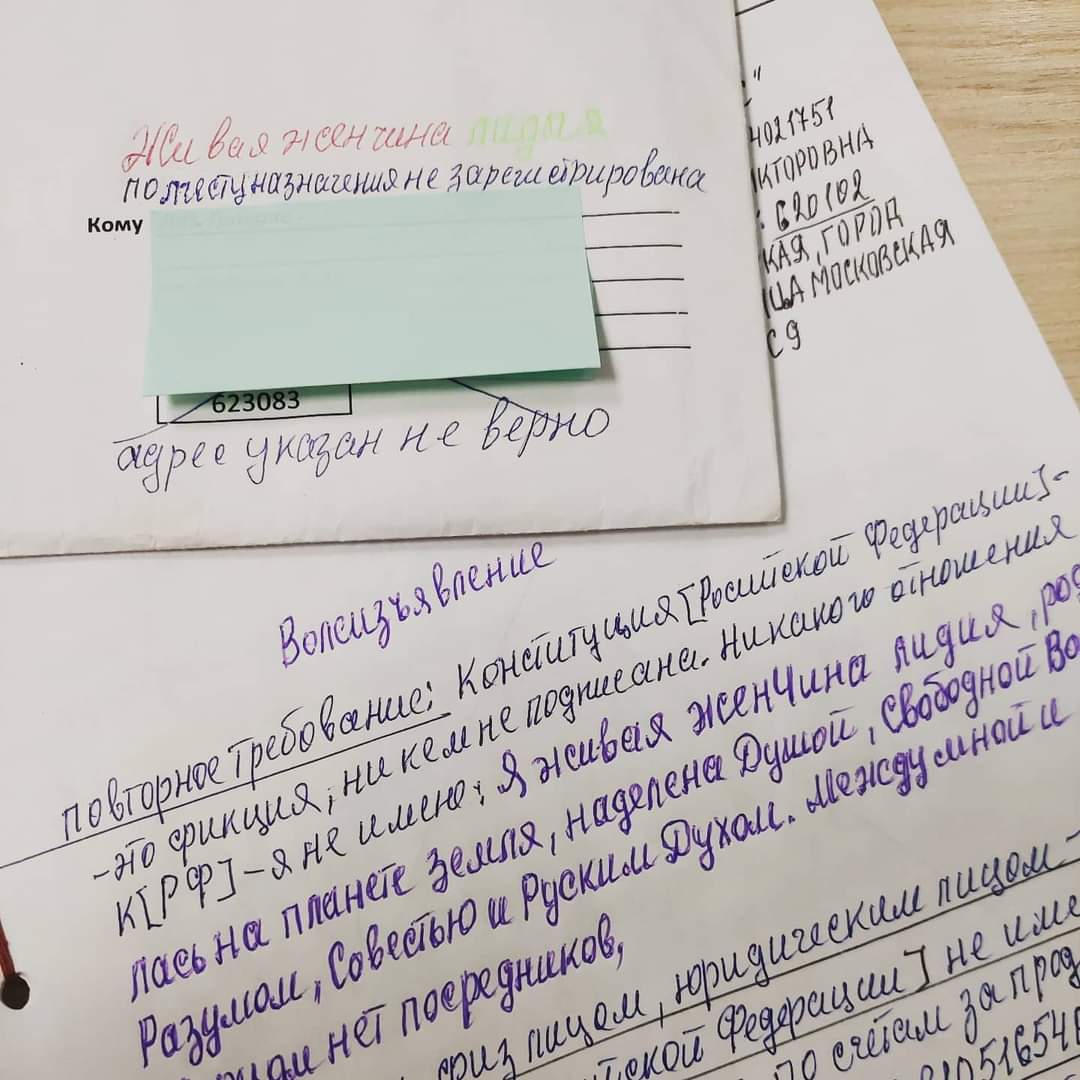 Живая женчина лидия
по месту назначения не зарегистрирована
Кому
623083
адрес указан не верно
4021751
КТОРОВНА
: 620102
КАЯ, ГОРОД
ЦА МОСКОВСКАЯ
С 9
Волеизъявление
повторное требование: Конституция [Росийской Федерации]-
-это фикция, ни кем не подписана. Никакого отношения
к [РФ] - я не имею; Я живая женчина лидия, род
лась на планете Земля, наделена Душой, Свободной Во
Разумом, Совестью и Руским Духом. Между мной и
нет посредников,
физ лицом, юридическим лицом -
ской Федерации] не име
по счетам за прод